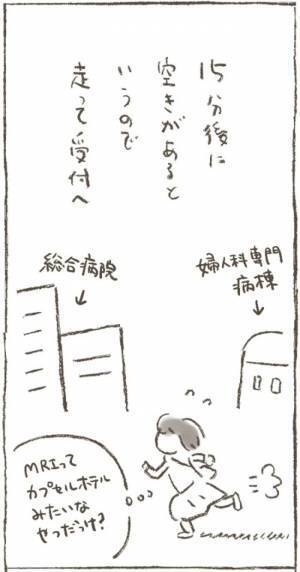 15分後に
空きがあると
いうので
走って受付へ
婦人科専門
病棟
総合病院
MRIって
カプセルホテル
みたいな
ヤツだっけ?